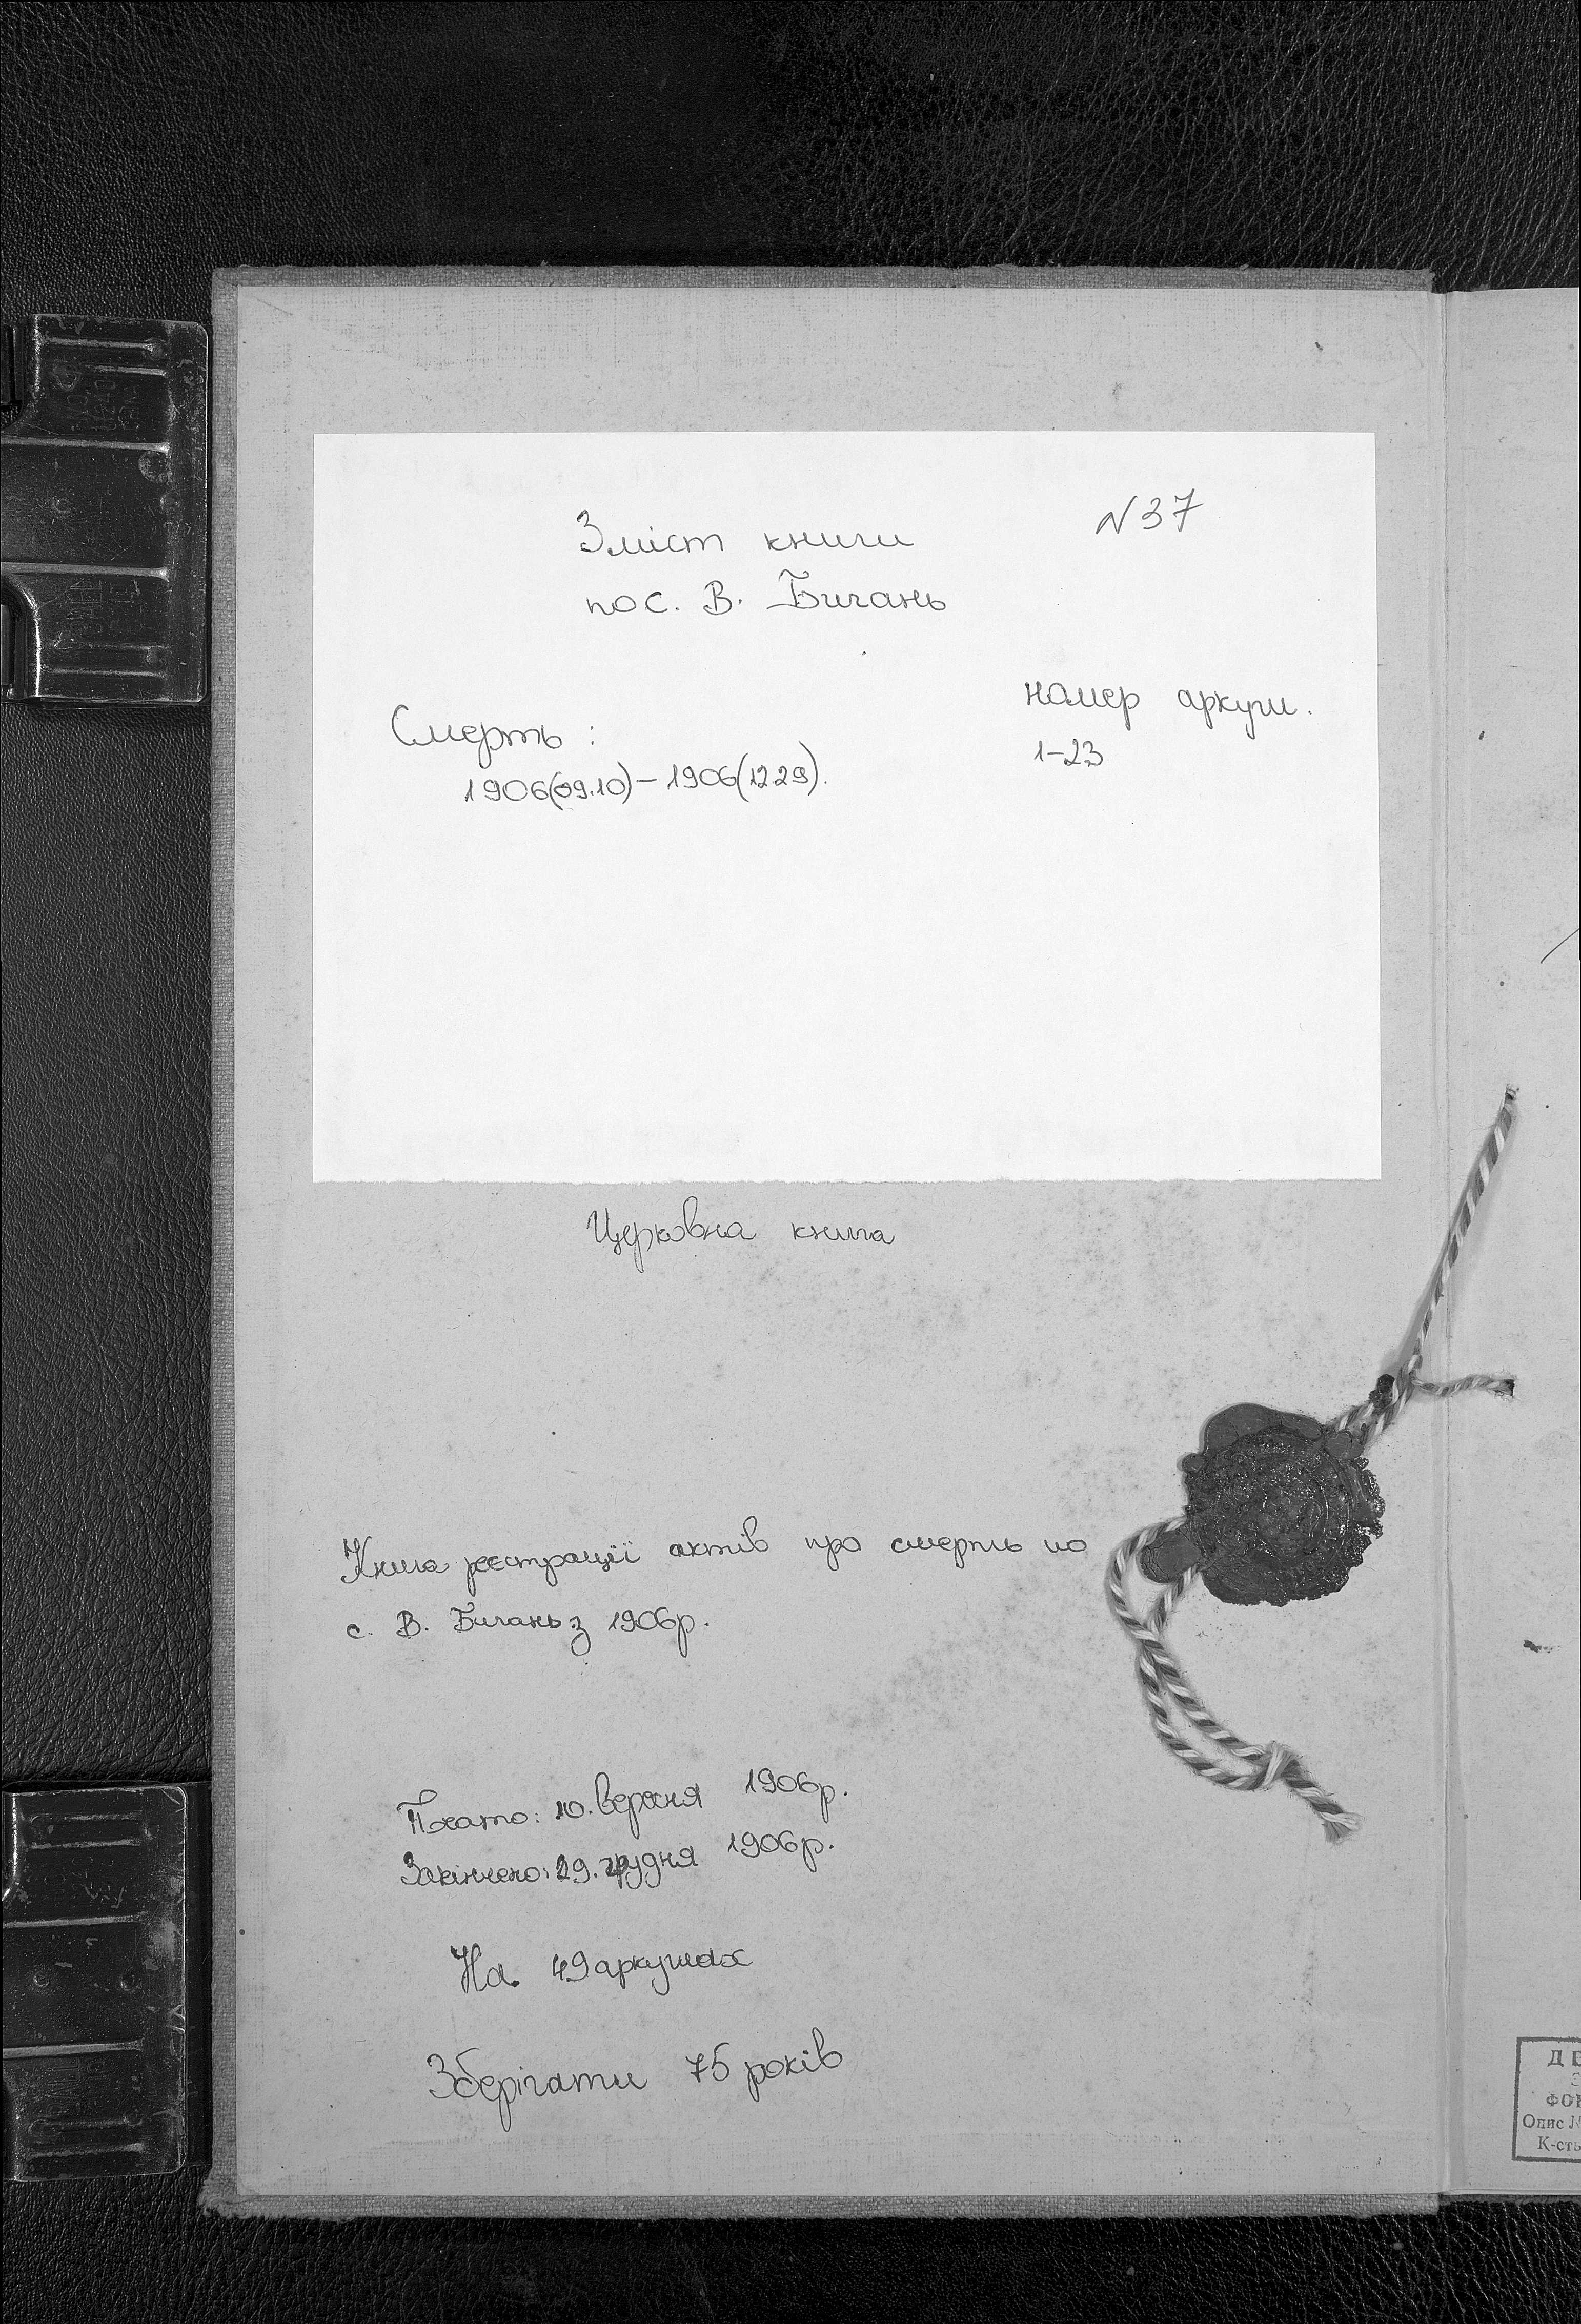 N 37
Зміст книги
по с. В. Бигань
номер аркуш.
Смерть :
1-23
1906(09.10) – 1906(12.29).
Церковна книга
Книга реєстрації актів про смерть по
с. В. Бигань з 1906р.
Почато: 10. вересня 1906р.
Закінчено: 29. грудня 1906р.
На 49 аркушах
Зберігати 75 років
ФОН
Опис №
К-сть